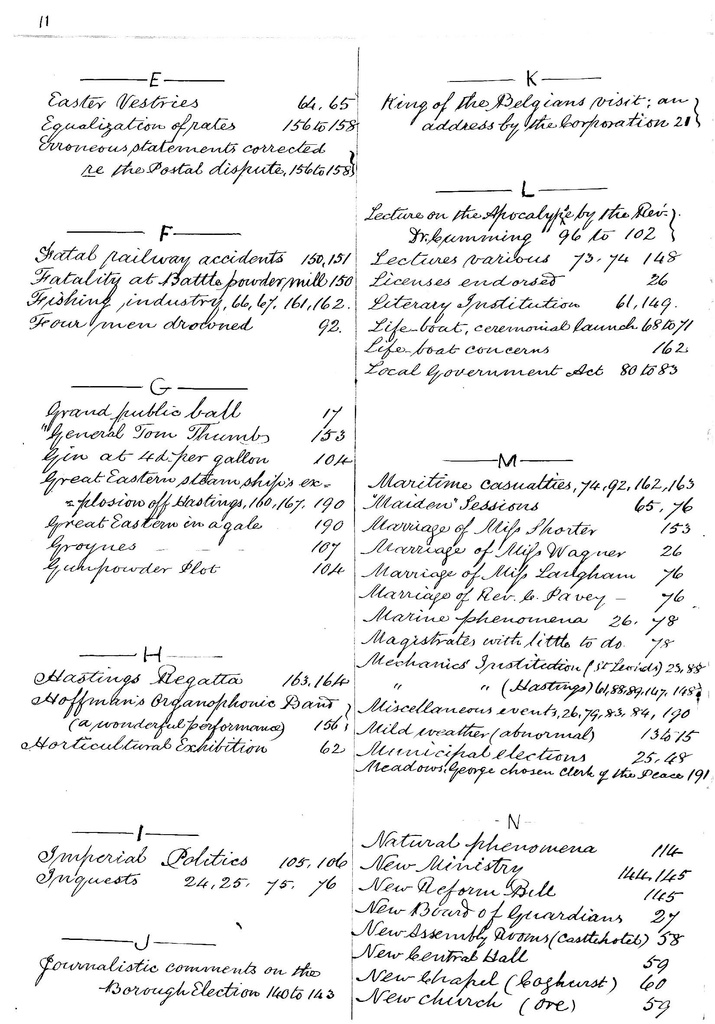 11
E
Easter Vestries 64, 65
Equalization of rates 156 to 158
Erroneous statements corrected
re the Postal dispute, 156 to 158
F
Fatal railway accidents 150, 151
Fatality at Battle powder mill 150
Fishing industry, 66, 67, 161, 162.
Four men drowned 92.
G
Grand public ball 17
"General Tom Thumb 153
Gin at 4d. per gallon 104
Great Eastern steam ship's ex-
-plosion off Hastings, 160, 167, 190
Great Eastern in a gale 190
Groynes - - - 107
Gunpowder Plot 104
H
Hastings Regatta 163, 164
Hoffman's Organophonic Band
(a wonderful performance) 156
Horticultural Exhibition 62
I
Imperial Politics 105, 106
Inquests 24, 25, 75, 76
J
Journalistic comments on the
Borough Election 140 to 143
K
King of the Belgians visit; an
address by the Corporation 21
L
Lecture on the Apocalypse by the Rev.
Dr. Cumming 96 to 102
Lectures various 73, 74 148
Licenses endorsed 26
Literary Institution 61, 149.
Life-boat, ceremonial launch 68 to 71
Life-boat concerns 162
Local Government Act 80 to 83
M
Maritime casualties, 74, 92, 162, 163
"Maiden" Sessions 65, 76
Marriage of Miss Shorter 153
Marriage of Miss Wagner 26
Marriage of Miss Langham 76
Marriage of Rev. C. Pavey - 76
Marine phenomena 26. 78
Magistrates with little to do. 78
Mechanics' Institution (St Leonards) 23, 88
" " (Hastings) 61, 88, 89, 147, 148
Miscellaneous events, 26, 79, 83, 84, 190
Mild weather (abnormal) 13 to 15
Municipal elections 25, 48
Meadows, George chosen Clerk of the Peace 191
N
Natural phenomena 114
New Ministry 144, 145
New Reform Bill 145
New Board of Guardians 27
New Assembly Rooms (Castle hotel) 58
New Central Hall 59
New Chapel (Coghurst) 60
New church (Ore) 59